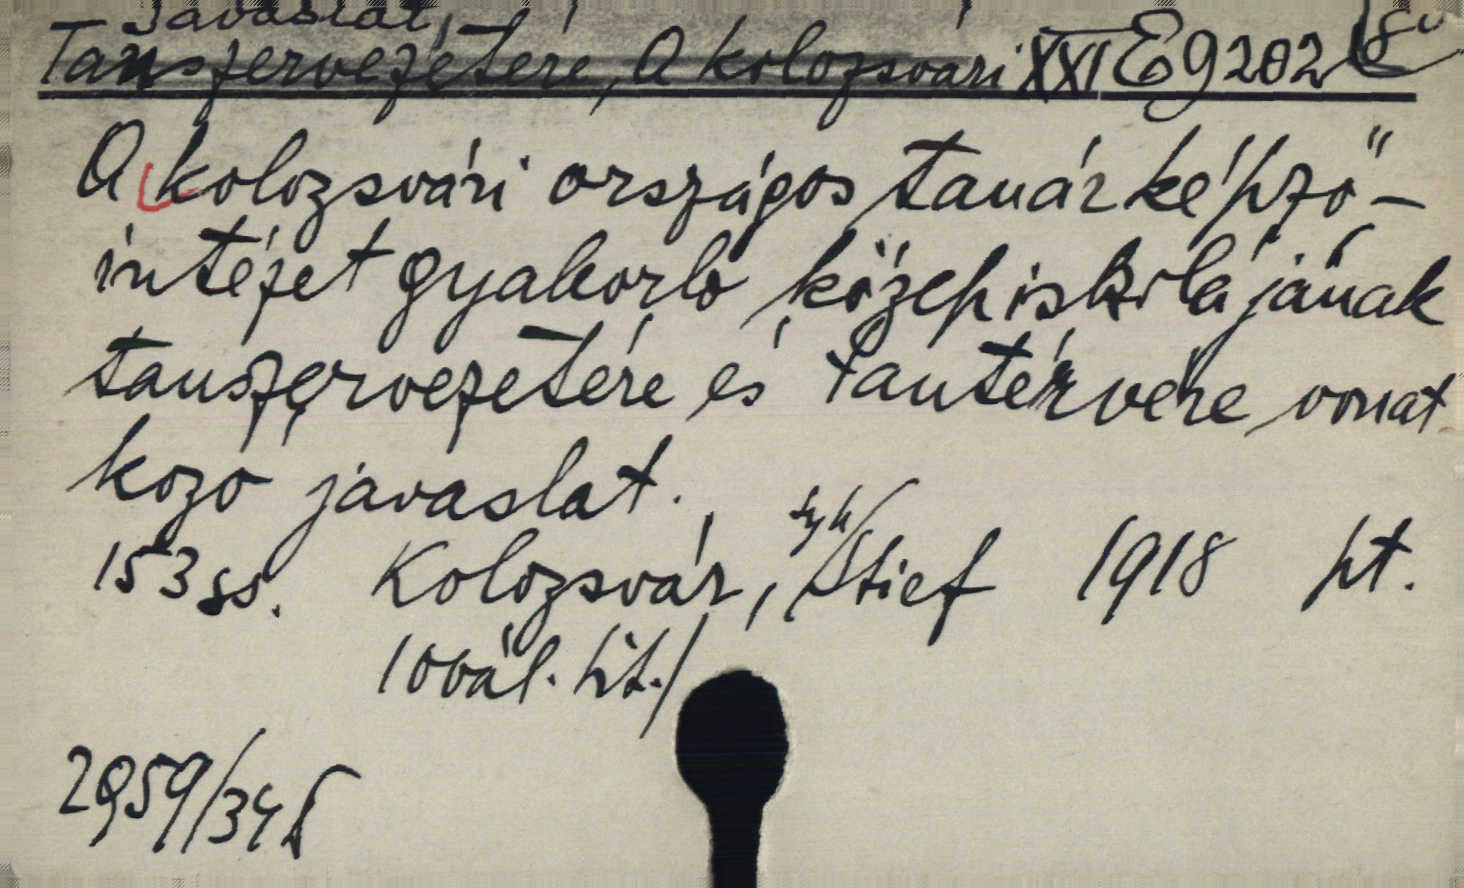 Javaslat,
Tanszervezetére, A kolozsvári XXI E 9202
A kolozsvári országos tanárképző-
intézet gyakorló középiskolájának
tanszervezetére és tantervére vonat
kozó javaslat.
153 ss. Kolozsvár, Stief 1918 pt.
/ovál. hit./
2959/34